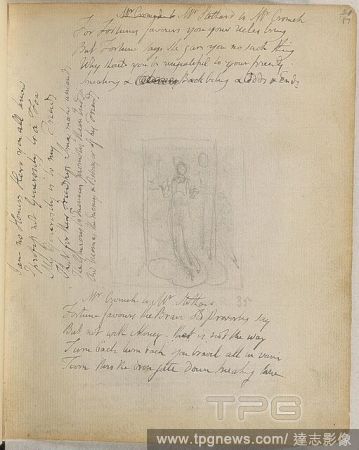 Mr Cromek to Mr Stothard to Mr Cromek
For Fortunes favours you your riches bring
But Fortune says she gave you no such thing
Why should you be ungrateful to your friends
Sneaking & Backbiting & Odds & Ends
I am no Homers Hero you all know
I profess not Generosity to a Foe
My Generosity is to my Friends
That for their Friendship I may make amends
The Generous to Enemies promotes their Ends
And becomes the Enemy & Betrayer of his Friends
Mr Cromek to Mr Stothard
Fortune favours the Brave old Proverbs say
But not with Money that is not the way
Turn back turn back you travel all in vain
Turn thro the iron gate down Sneaking lane
TPG
www.tpgnews.com / 達志影像